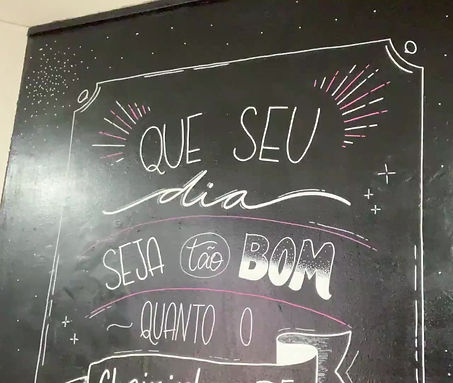 QUE SEU
dia
SEJA tão BOM
~ QUANTO O